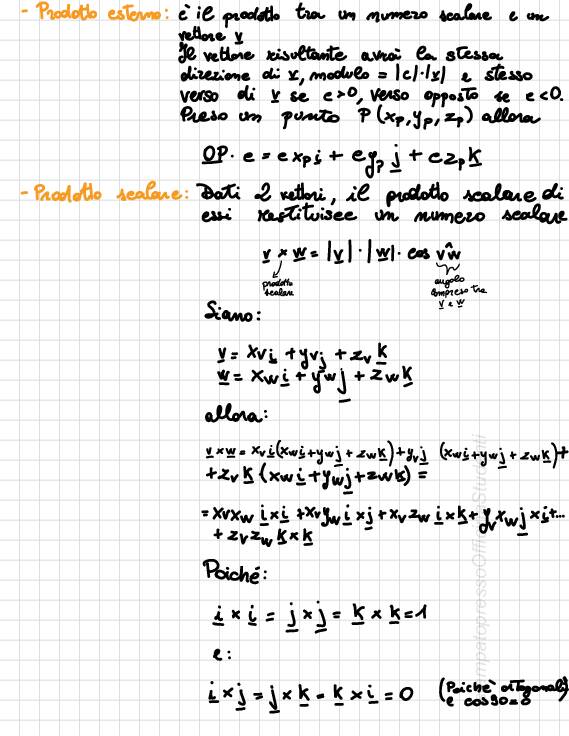 - Prodotto esterno: è il prodotto tra un numero scalare e un
vettore v
Il vettore risultante avrà la stessa
direzione di v, modulo = |c|·|v| e stesso
verso di v se c>0, verso opposto se c<0.
Preso un punto P(xp, yp, zp) allora
OP · c = c xp i + c yp j + c zp k
- Prodotto scalare: Dati 2 vettori, il prodotto scalare di
essi restituisce un numero scalare
v × w = |v| · |w| · cos vŵ
prodotto
scalare
angolo
compreso tra
v e w
Siano:
v = xv i + yv j + zv k
w = xw i + yw j + zw k
allora:
v × w = xv i (xw i + yw j + zw k) + yv j (xw i + yw j + zw k) +
+ zv k (xw i + yw j + zw k) =
= xv xw i × i + xv yw i × j + xv zw i × k + yv xw j × i + ...
+ zv zw k × k
Poiché:
i × i = j × j = k × k = 1
e:
i × j = j × k = k × i = 0 (Poiché ortogonali
e cos90=0